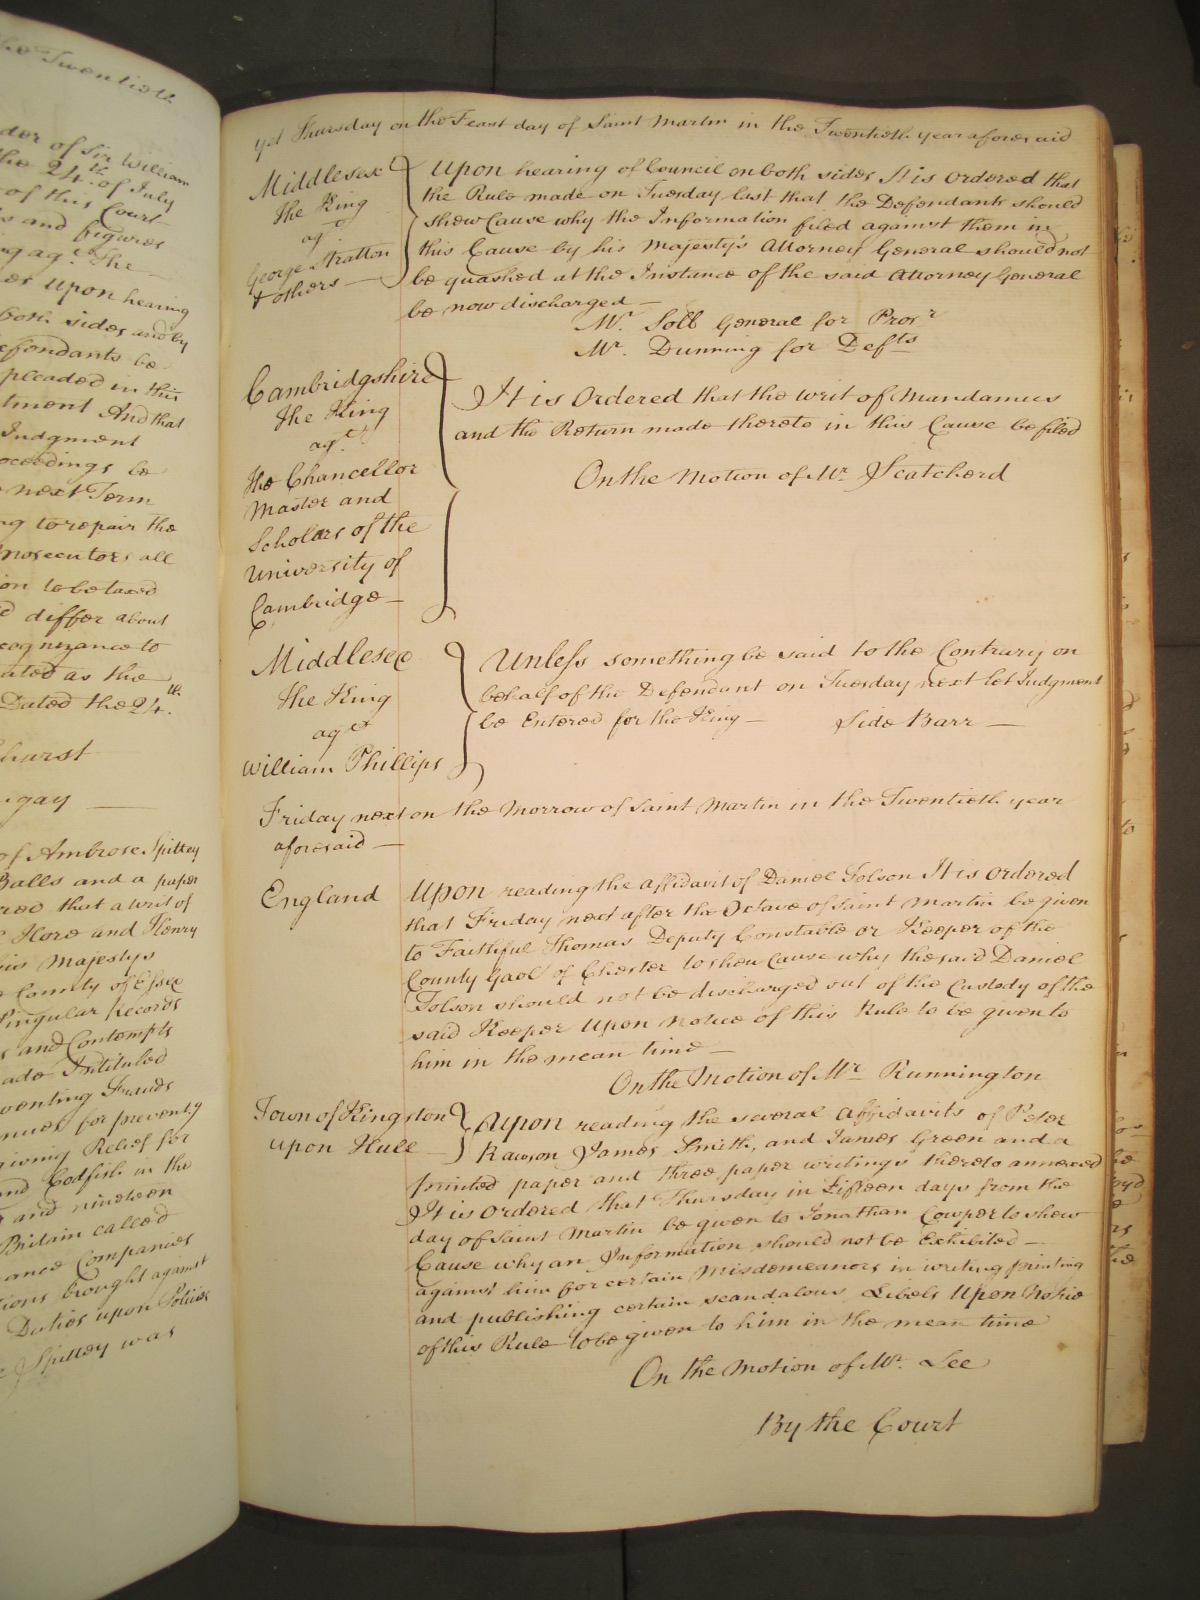 the Twentieth
der of Sir William
the 24th. of July
of this Court
s and figures
ng agt. The
es upon hearing
both sides and by
efendants be
pleaded in this
tment And that
Judgment
oceedings be
next Term
ng to repair the
Prosecutors all
on to be taxed
d differ about
cognizance to
ated as the
Dated the 24th.
hurst
gay
of Ambrose Spittey
Balls and a paper
red that a writ of
Hore and Henry
his Majestys
County of Essex
Singular Records
s and Contempts
ade Intituled
venting Frauds
nues for preventg
giving Relief for
and Codfish in the
and nineteen
Britain called
ance Companies
tions brought against
Duties upon Policies
Spittey was
yet Thursday on the Feast day of Saint Martin in the Twentieth year aforesaid
Middlesex
The King
agt.
George Stratton
& others
Upon hearing of Council on both sides It is ordered that
the Rule made on Tuesday last that the Defendants should
shew Cause why the Information filed against them in
this Cause by his Majesty's Attorney General should not
be quashed at the Instance of the said Attorney General
be now discharged
Mr. Soll General for Prosr
Mr. Dunning for Defts
Cambridgshire
The King
agt.
The Chancellor
Master and
Scholars of the
University of
Cambridge
It is Ordered that the writ of Mandamus
and the Return made thereto in this Cause be filed
On the Motion of Mr. Scatcherd
Middlesex
The King
agt
William Phillips
Unless something be said to the Contrary on
behalf of the Defendant on Tuesday next let Judgment
be Entered for the King — Side Barr —
Friday next on the Morrow of Saint Martin in the Twentieth year
aforesaid —
England
Upon reading the affidavit of Daniel Tolson It is ordered
that Friday next after the Octave of Saint Martin be given
to Faithful Thomas Deputy Constable or Keeper of the
County Gaol of Chester to shew Cause why the said Daniel
Tolson should not be discharged out of the Custody of the
said Keeper Upon notice of this Rule to be given to
him in the mean time —
On the Motion of Mr. Runnington
Town of Kingston
upon Hull
Upon reading the several affidavits of Peter
Rawson James Smith, and James Green and a
printed paper and three paper writings thereto annexed
It is ordered that Thursday in Fifteen days from the
day of Saint Martin be given to Jonathan Cowper to shew
Cause why an Information should not be Exhibited —
against him for certain Misdemeanors in writing printing
and publishing certain scandalous Libels Upon Notice
of this Rule to be given to him in the mean time
On the Motion of Mr. Lee
By the Court